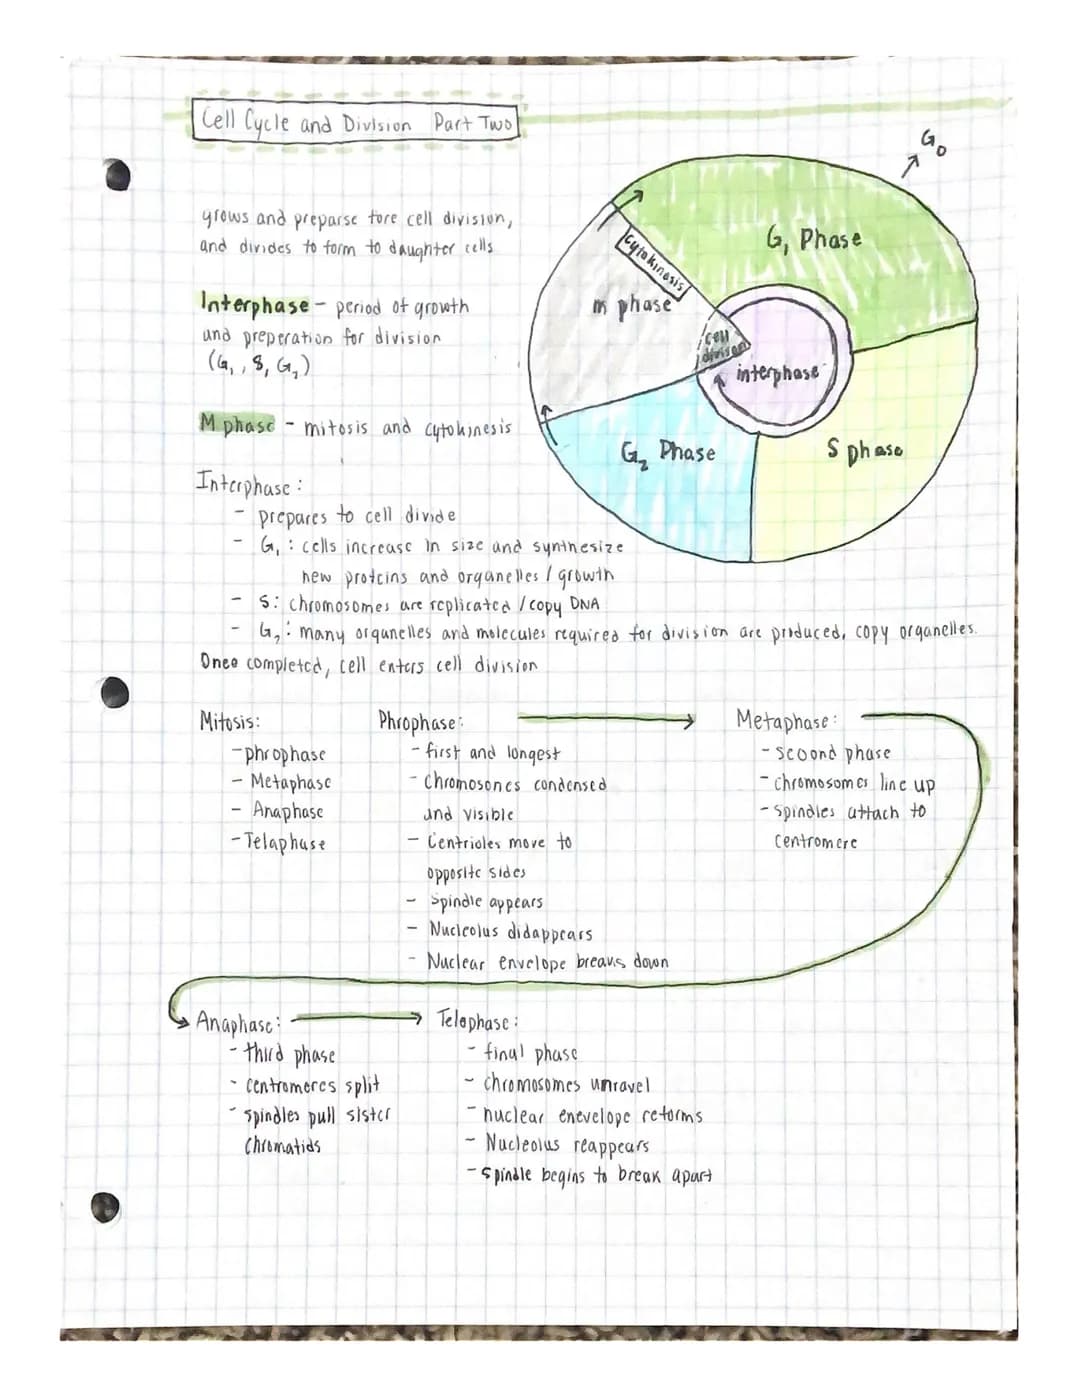 Cell Cycle and Division Part Two
grows and preparse fore cell division,
and divides to form to daughter cells
Interphase - period of growth
and preperation for division
(G₁, S, G₂)
M phase - mitosis and cytokinesis
G₀
G₁ Phase
cytokinesis
m phase
cell
divison
interphase
G₂ Phase
S phase
Interphase:
- prepares to cell divide
- G₁: cells increase in size and synthesize
new proteins and organelles / growth
- S: chromosomes are replicated / copy DNA
- G₂: many organelles and molecules required for division are produced, copy organelles.
Once completed, cell enters cell division
Mitosis:
- phrophase
- Metaphase
- Anaphase
- Telaphase
Phrophase:
- first and longest
- Chromosones condensed
and visible
- Centrioles move to
opposite sides
- Spindle appears
- Nucleolus didappears
- Nuclear envelope breaks down
Metaphase:
- second phase
- chromosomes line up
- Spindles attach to
centromere
Anaphase:
- third phase
- centromeres split
- spindles pull sister
Chromatids
Telophase:
- final phase
- chromosomes unravel
- nuclear enevelope reforms
- Nucleolus reappears
- Spindle begins to break apart